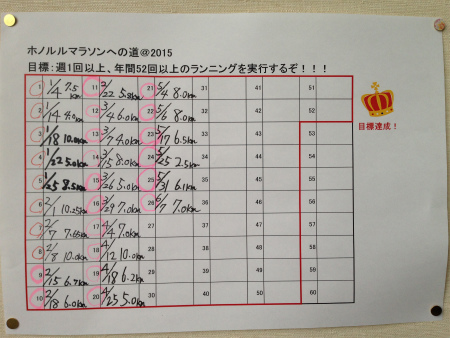 ホノルルマラソンへの道@2015
目標:週1回以上、年間52回以上のランニングを実行するぞ!!!
1 1/4 7.5km 11 2/22 5.8km 21 5/4 8.0km 31 41 51
2 1/14 4.0km 12 3/4 6.0km 22 5/6 8.0km 32 42 52
3 1/18 10.0km 13 3/7 4.0km 23 5/17 6.5km 33 43 53
4 1/22 5.0km 14 3/15 8.0km 24 5/25 2.5km 34 44 54
5 1/25 8.5km 15 3/26 5.0km 25 5/31 6.1km 35 45 55
6 2/1 10.25km 16 3/29 7.0km 26 6/7 7.0km 36 46 56
7 2/7 7.65km 17 4/4 7.0km 27 37 47 57
8 2/8 10.0km 18 4/12 10.0km 28 38 48 58
9 2/15 6.7km 19 4/18 6.2km 29 39 49 59
10 2/18 6.0km 20 4/25 5.0km 30 40 50 60
目標達成!